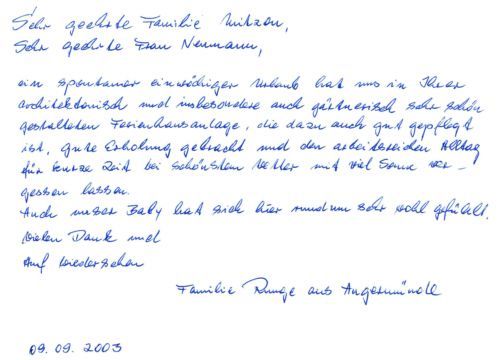 Sehr geehrte Familie Nitzen,
Sehr geehrte Frau Neumann,
ein spontaner einwöchiger Urlaub hat uns in Ihrer
architektonisch und insbesondere auch gärtnerisch sehr schön
gestalteten Ferienhausanlage, die dazu auch gut gepflegt
ist, gute Erholung gebracht und den arbeitsreichen Alltag
für kurze Zeit bei schönsten Wetter mit viel Sonne ver-
gessen lassen.
Auch unser Baby hat sich hier rundum sehr wohl gefühlt.
Vielen Dank und
Auf Wiedersehen
Familie Runge aus Angermünde
09.09.2003